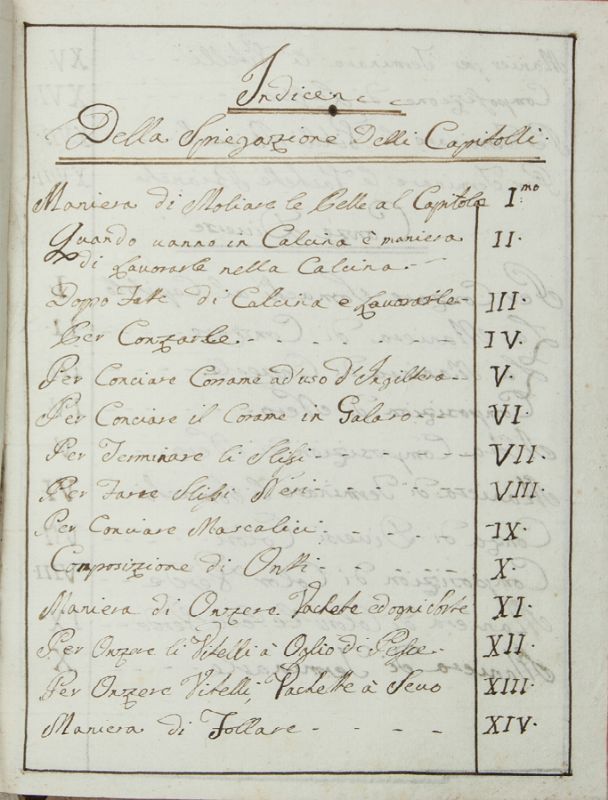 Indice
Della Spiegazione Delli Capitolli
Maniera di Moliare le Pelle al Capitolo I.mo
Quando uanno in Calcina è maniera II.
di Lavorarle nella Calcina.-
Doppo Fatte di Calcina e Lavorarle- III.
Per Conzarle. - - - - IV.
Per Conciare Corame ad'uso d'Ingiltera- V.
Per Conciare il Corame in Galaro - - VI.
Per Terminare li Slisi - - - - VII.
Per Farre Slisi Neri - - - - VIII.
Per Conciare - - - IX.
Composizione di Onti - - - X.
Maniera di Onzere Vachete ed ogni Sorte XI.
Per Onzere li Vitelli à Oglio di Pesce - XII.
Per Onzere Vitelli, Vachette à Seuo XIII.
Maniera di Follare - - - - XIV.